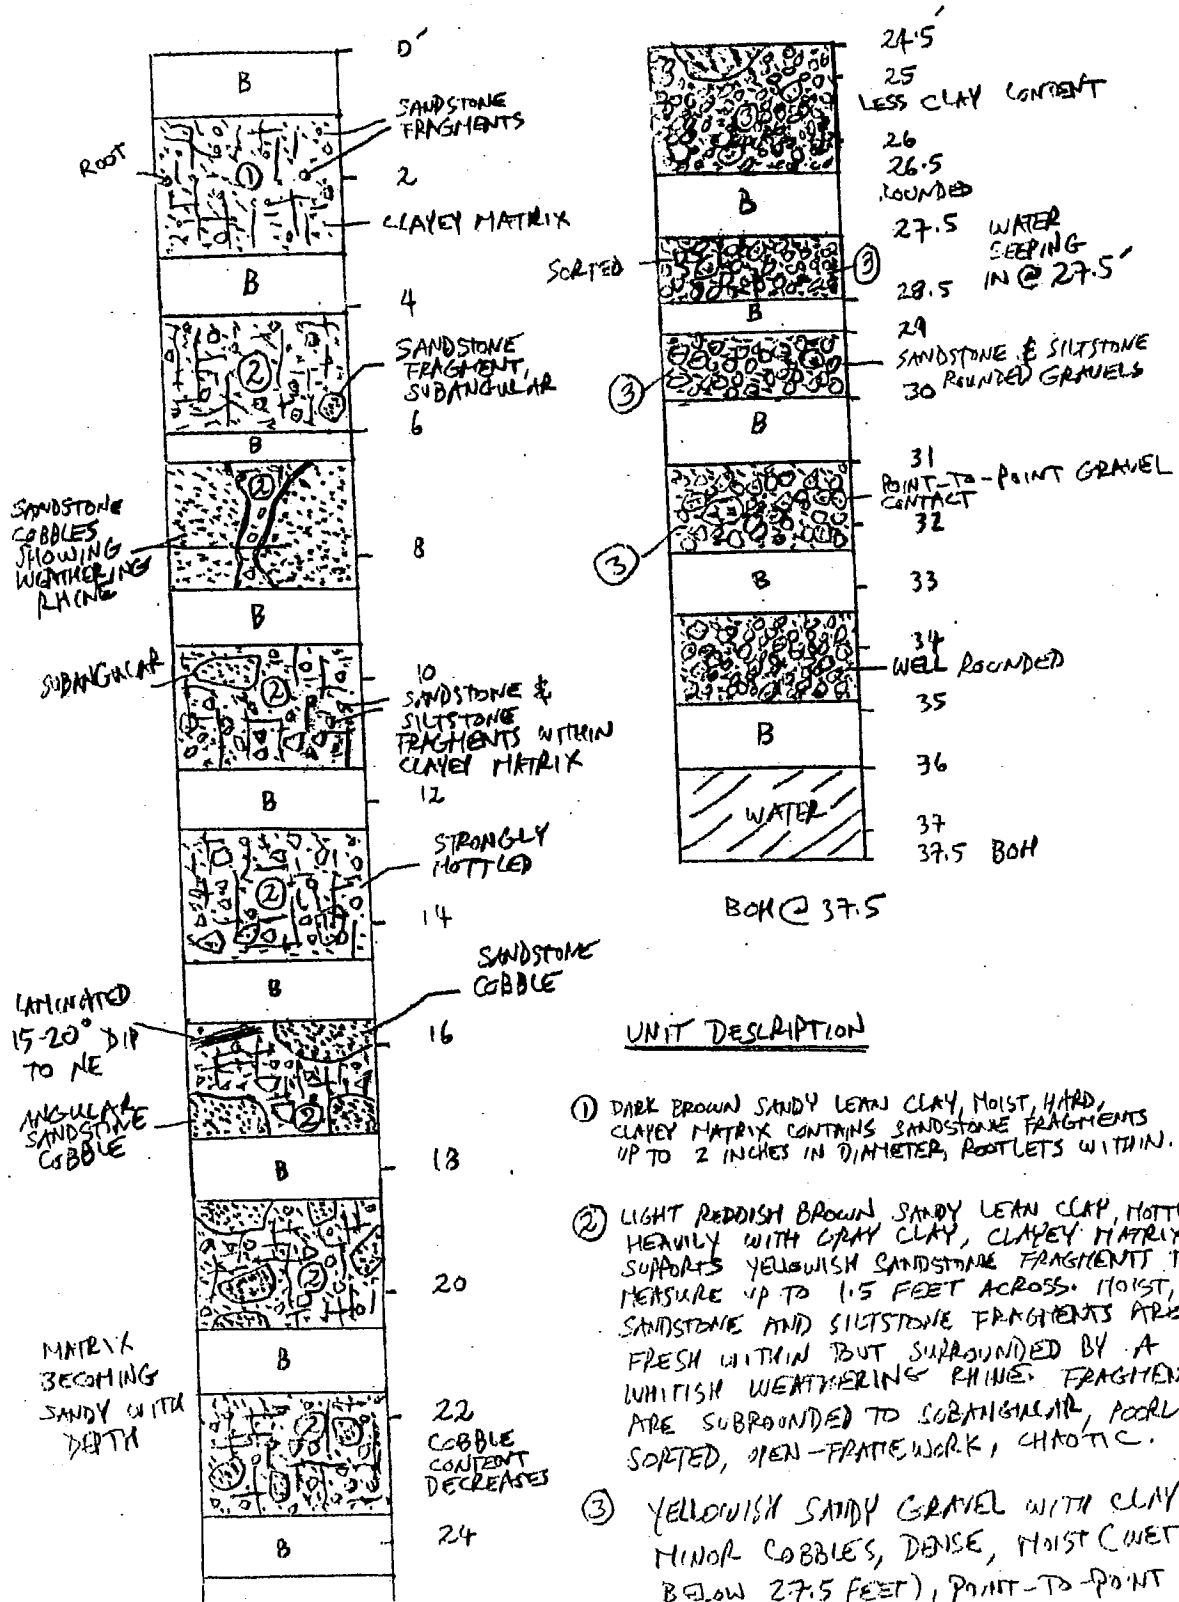 0'
B
SANDSTONE
FRAGMENTS
ROOT
①
2
CLAYEY MATRIX
B
4
SANDSTONE
FRAGMENT,
SUBANGULAR
②
6
B
②
SANDSTONE
COBBLES
SHOWING
WEATHERING
RHINE
8
B
SUBANGULAR
②
10
SANDSTONE &
SILTSTONE
FRAGMENTS WITHIN
CLAYEY MATRIX
B
12
STRONGLY
MOTTLED
②
14
B
SANDSTONE
COBBLE
LAMINATED
15-20° DIP
TO NE
16
ANGULAR
SANDSTONE
COBBLE
②
B
18
②
20
MATRIX
BECOMING
SANDY WITH
DEPTH
B
②
22
COBBLE
CONTENT
DECREASES
B
24
24.5'
25
LESS CLAY CONTENT
③
26
26.5
ROUNDED
B
27.5 WATER
SEEPING
IN @ 27.5'
SORTED
③
28.5
B
29
SANDSTONE & SILTSTONE
ROUNDED GRAVELS
30
③
B
31
POINT-TO-POINT GRAVEL
CONTACT
32
③
B
33
34
WELL ROUNDED
35
B
36
WATER
37
37.5 BOH
BOH @ 37.5
UNIT DESCRIPTION
① DARK BROWN SANDY LEAN CLAY, MOIST, HARD,
CLAYEY MATRIX CONTAINS SANDSTONE FRAGMENTS
UP TO 2 INCHES IN DIAMETER, ROOTLETS WITHIN.
② LIGHT REDDISH BROWN SANDY LEAN CLAY, MOTT
HEAVILY WITH GRAY CLAY, CLAYEY MATRIX
SUPPORTS YELLOWISH SANDSTONE FRAGMENTS T
MEASURE UP TO 1.5 FEET ACROSS. MOIST,
SANDSTONE AND SILTSTONE FRAGMENTS ARE
FRESH WITHIN BUT SURROUNDED BY A
WHITISH WEATHERING RHINE. FRAGMEN
ARE SUBROUNDED TO SUBANGULAR, POORL
SORTED, OPEN-FRAMEWORK, CHAOTIC.
③ YELLOWISH SANDY GRAVEL WITH CLAY
MINOR COBBLES, DENSE, MOIST (WET
BELOW 27.5 FEET), POINT-TO-POINT